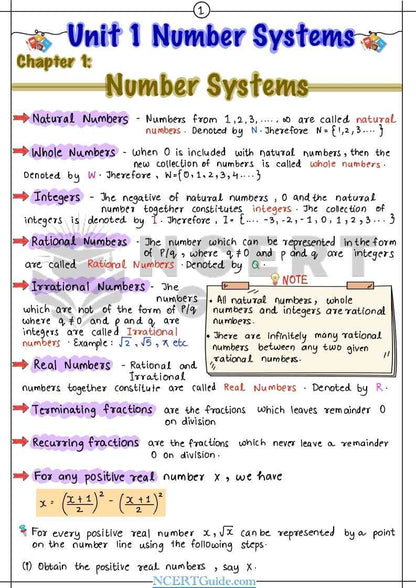 1
Unit 1 Number Systems
Chapter 1:
Number Systems
Natural Numbers - Numbers from 1,2,3,..... ∞ are called natural
numbers. Denoted by N. Therefore N = {1,2,3....}
Whole Numbers - When 0 is included with natural numbers, then the
new collection of numbers is called whole numbers.
Denoted by W. Therefore, W={0,1,2,3,4....}
Integers - The negative of natural numbers, 0 and the natural
number together constitutes integers. The collection of
integers is denoted by I. Therefore, I= {.... -3,-2,-1,0,1,2,3...}
Rational Numbers - The number which can be represented in the form
of P/q, where q≠0 and p and q are integers
are called Rational Numbers. Denoted by Q.
Irrational Numbers - The
numbers
which are not of the form of P/q
where q≠0 and p and q are
integers are called Irrational
numbers. Example: √2, √5, π etc
NOTE
• All natural numbers, whole
numbers and integers are rational
numbers.
• There are infinitely many rational
numbers between any two given
rational numbers.
Real Numbers - Rational and
Irrational
numbers together constitute are called Real Numbers. Denoted by R.
Terminating fractions are the fractions which leaves remainder 0
on division
Recurring fractions are the fractions which never leave a remainder
0 on division.
For any positive real number x, we have
x = ((x+1)/2)² - ((x+1)/2)²
For every positive real number x, √x can be represented by a point
on the number line using the following steps.
(1) Obtain the positive real numbers, say x.
NCERTGuide.com